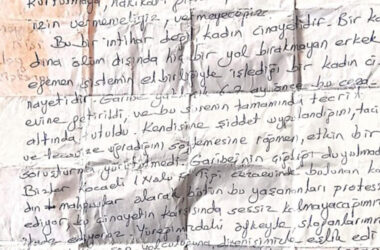 kurtulmaya hakikati
izin vermeneliyiz, vermeyeceğiz
Bu bir intihar değil kadın cinayetidir. Bir ka
dına ölüm dışında hiç bir yol bırakmayan erkek
egemen sistemin el birliğiyle işlediği bir kadın ci
nayetidir. Garibe ay önce bu ceza
evine getirildi, ve bu sürenin tamamında tecrit
altında tutuldu. Kendisine şiddet uygulandığını, tac
ve tecavüze uğradığını söylemesine rağmen, etkin bir
soruşturma yürütülmedi. Garibe'nin çığlığı duyulmad
Bizler Kocaeli 1 Nolu F Tipi cezaevinde bulunan ka
dın mahpuslar olarak bütün bu yaşananları protes
ediyor bu cinayetin karşısında sessiz kalmayacağımız
ediyoruz. Yüreğimizdeki öfkeyle, sloganlarımız
direnişimizle eşlik edi